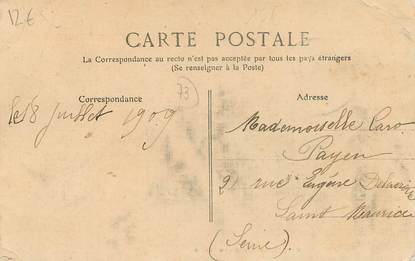 12€
CARTE POSTALE
La Correspondance au recto n'est pas acceptée par tous les pays étrangers
(Se renseigner à la Poste)
Correspondance
73
Adresse
le 18 Juillet 1909
Mademoiselle Caro
Payen
2 rue Eugène Delacroix
Saint Maurice
(Seine)